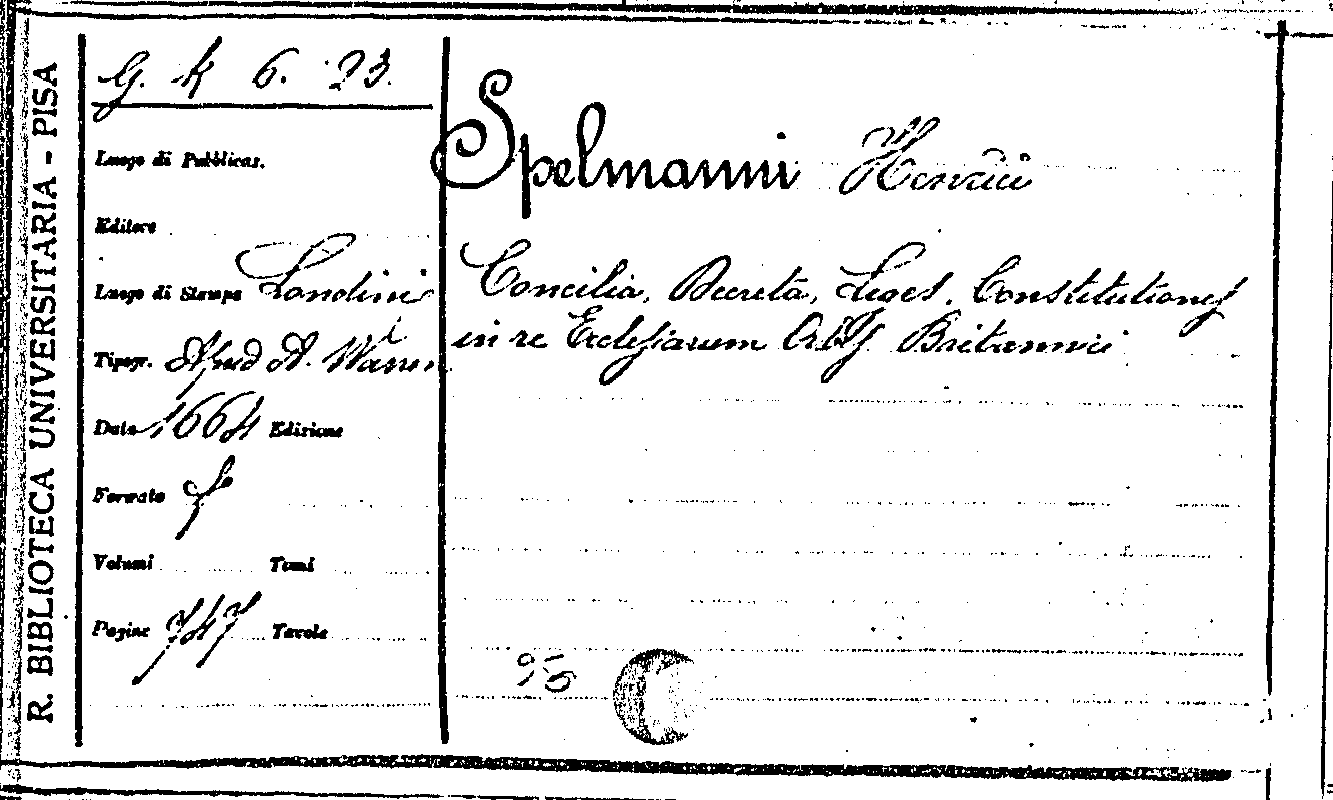 R. BIBLIOTECA UNIVERSITARIA - PISA
G. k 6. 23.
Luogo di Pubblicaz.
Editore
Luogo di Stampa Londini
Tipogr. Apud A. Warren
Data 1664 Edizione
Formato f°
Volumi Tomi
Pagine 747 Tavole
Spelmanni Henrici
Concilia, Decreta, Leges, Constitutiones
in re Ecclesiarum Orbis Britannici
95